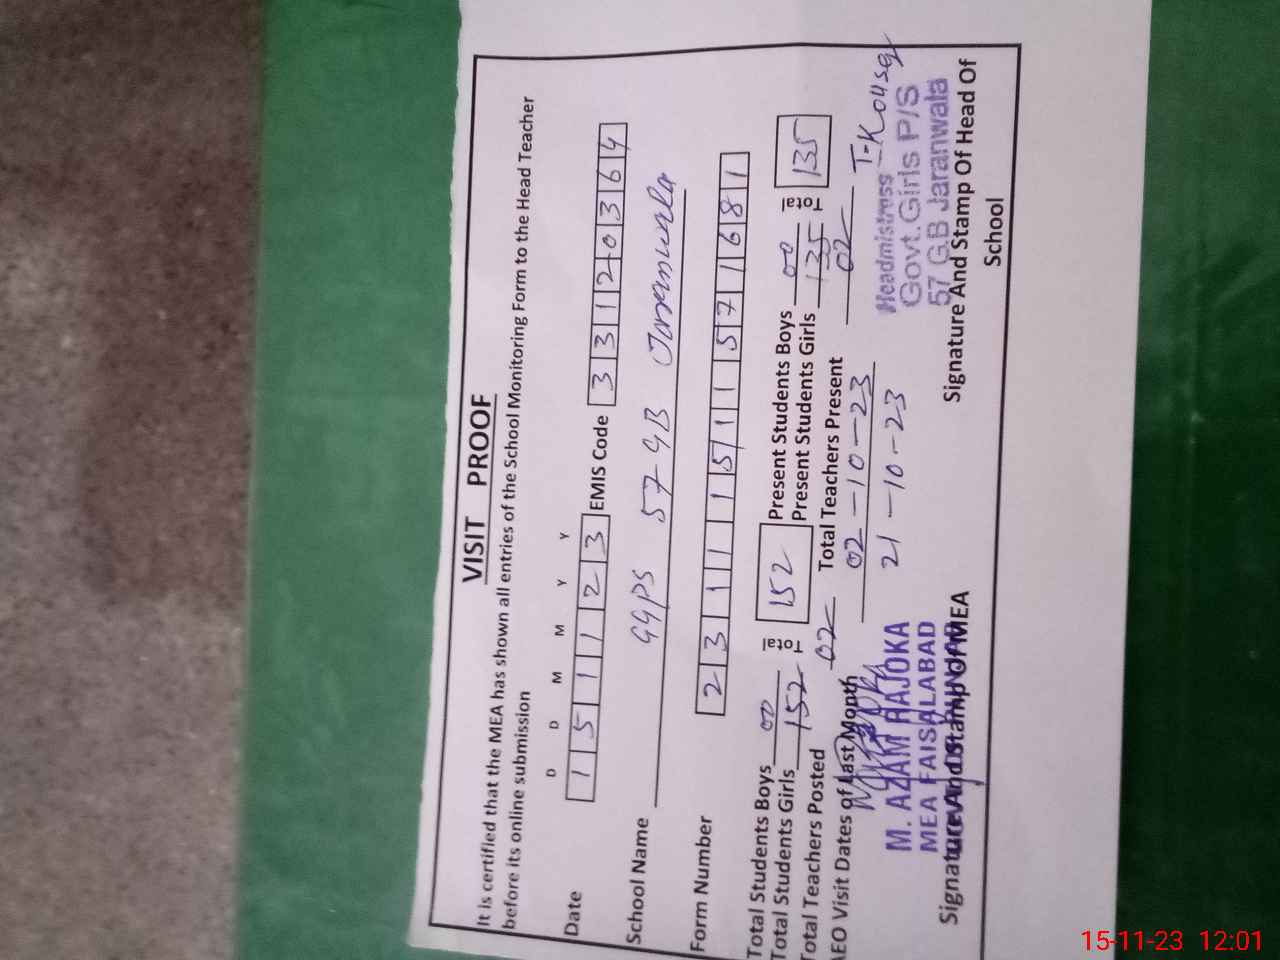 VISIT PROOF
It is certified that the MEA has shown all entries of the School Monitoring Form to the Head Teacher
before its online submission
D D M M Y Y
Date 1 5 1 1 2 3 EMIS Code 3 3 1 2 0 3 6 4
School Name GGPS 57 GB
Form Number 2 3 1 1 1 5 1 1 5 7 1 6 8 1
Total Students Boys 00 Total 152 Present Students Boys 00 Total 135
Total Students Girls 152 Present Students Girls 135
Total Teachers Posted 02 Total Teachers Present 02
AEO Visit Dates of Last Month 02-10-23
21-10-23
T-Kousar
M. AZAM RAJOKA
MEA FAISALABAD
Headmistress
Govt. Girls P/S
57 GB Jaranwala
Signature And Stamp Of MEA
Signature And Stamp Of Head Of
School
15-11-23 12:01